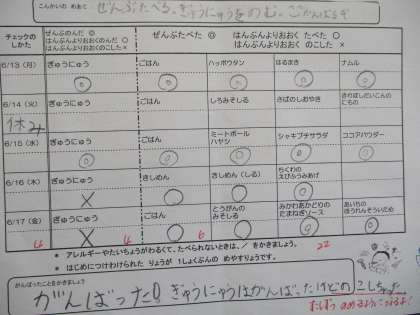 こんかいの めあて ぜんぶたべる、ぎゅうにゅうをのむ。ごかんばるぞ
チェックの しかた
ぜんぶのんだ ◎
はんぶんよりおおくのんだ ○
はんぶんよりおおくのこした ×
ぜんぶたべた ◎ はんぶんよりおおく たべた ○
はんぶんよりおおく のこした ×
6/13 (月) ぎゅうにゅう ごはん ハッポウタン はるまき ナムル
◎ ◎ ◎ ◎ ◎
6/14 (火) ぎゅうにゅう ごはん しろみそしる さばのしおやき きりぼしだいこんの にもの
休み
6/15 (水) ぎゅうにゅう ごはん ミートボール ハヤシ シャキブチサラダ ココアパウダー
◎ ◎ ◎ ◎ ◎
6/16 (木) ぎゅうにゅう きしめん きしめん (しる) ちくわの えびふうみあげ
× ○ ○ ◎
6/17 (金) ぎゅうにゅう ごはん とうがんの みそしる みかわあかどりの たまねぎソース あいちの ほうれんそういため
× ○ ○ ◎ ○
4 4 6 22
● アレルギーやたいちょうがわるくて、たべられないときは、／ をかきましょう。
● はじめにつけわけられた りょうが 1しょくぶんの めやすりょうです。
がんばったことをかきましょう
がんばった! ぎゅうにゅうはがんばったけどのこしちゃった